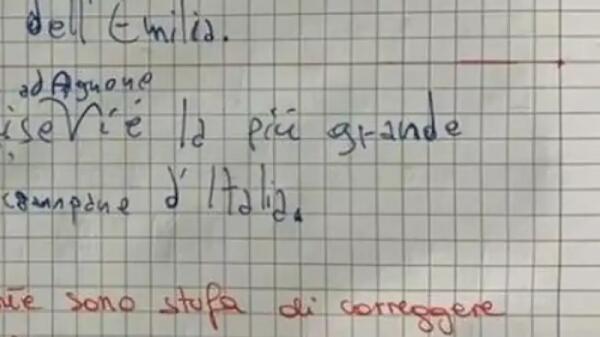 dell'Emilia.
ad Agnone
ise Vi è la più grande
campane d'Italia.
sono stufa di correggere